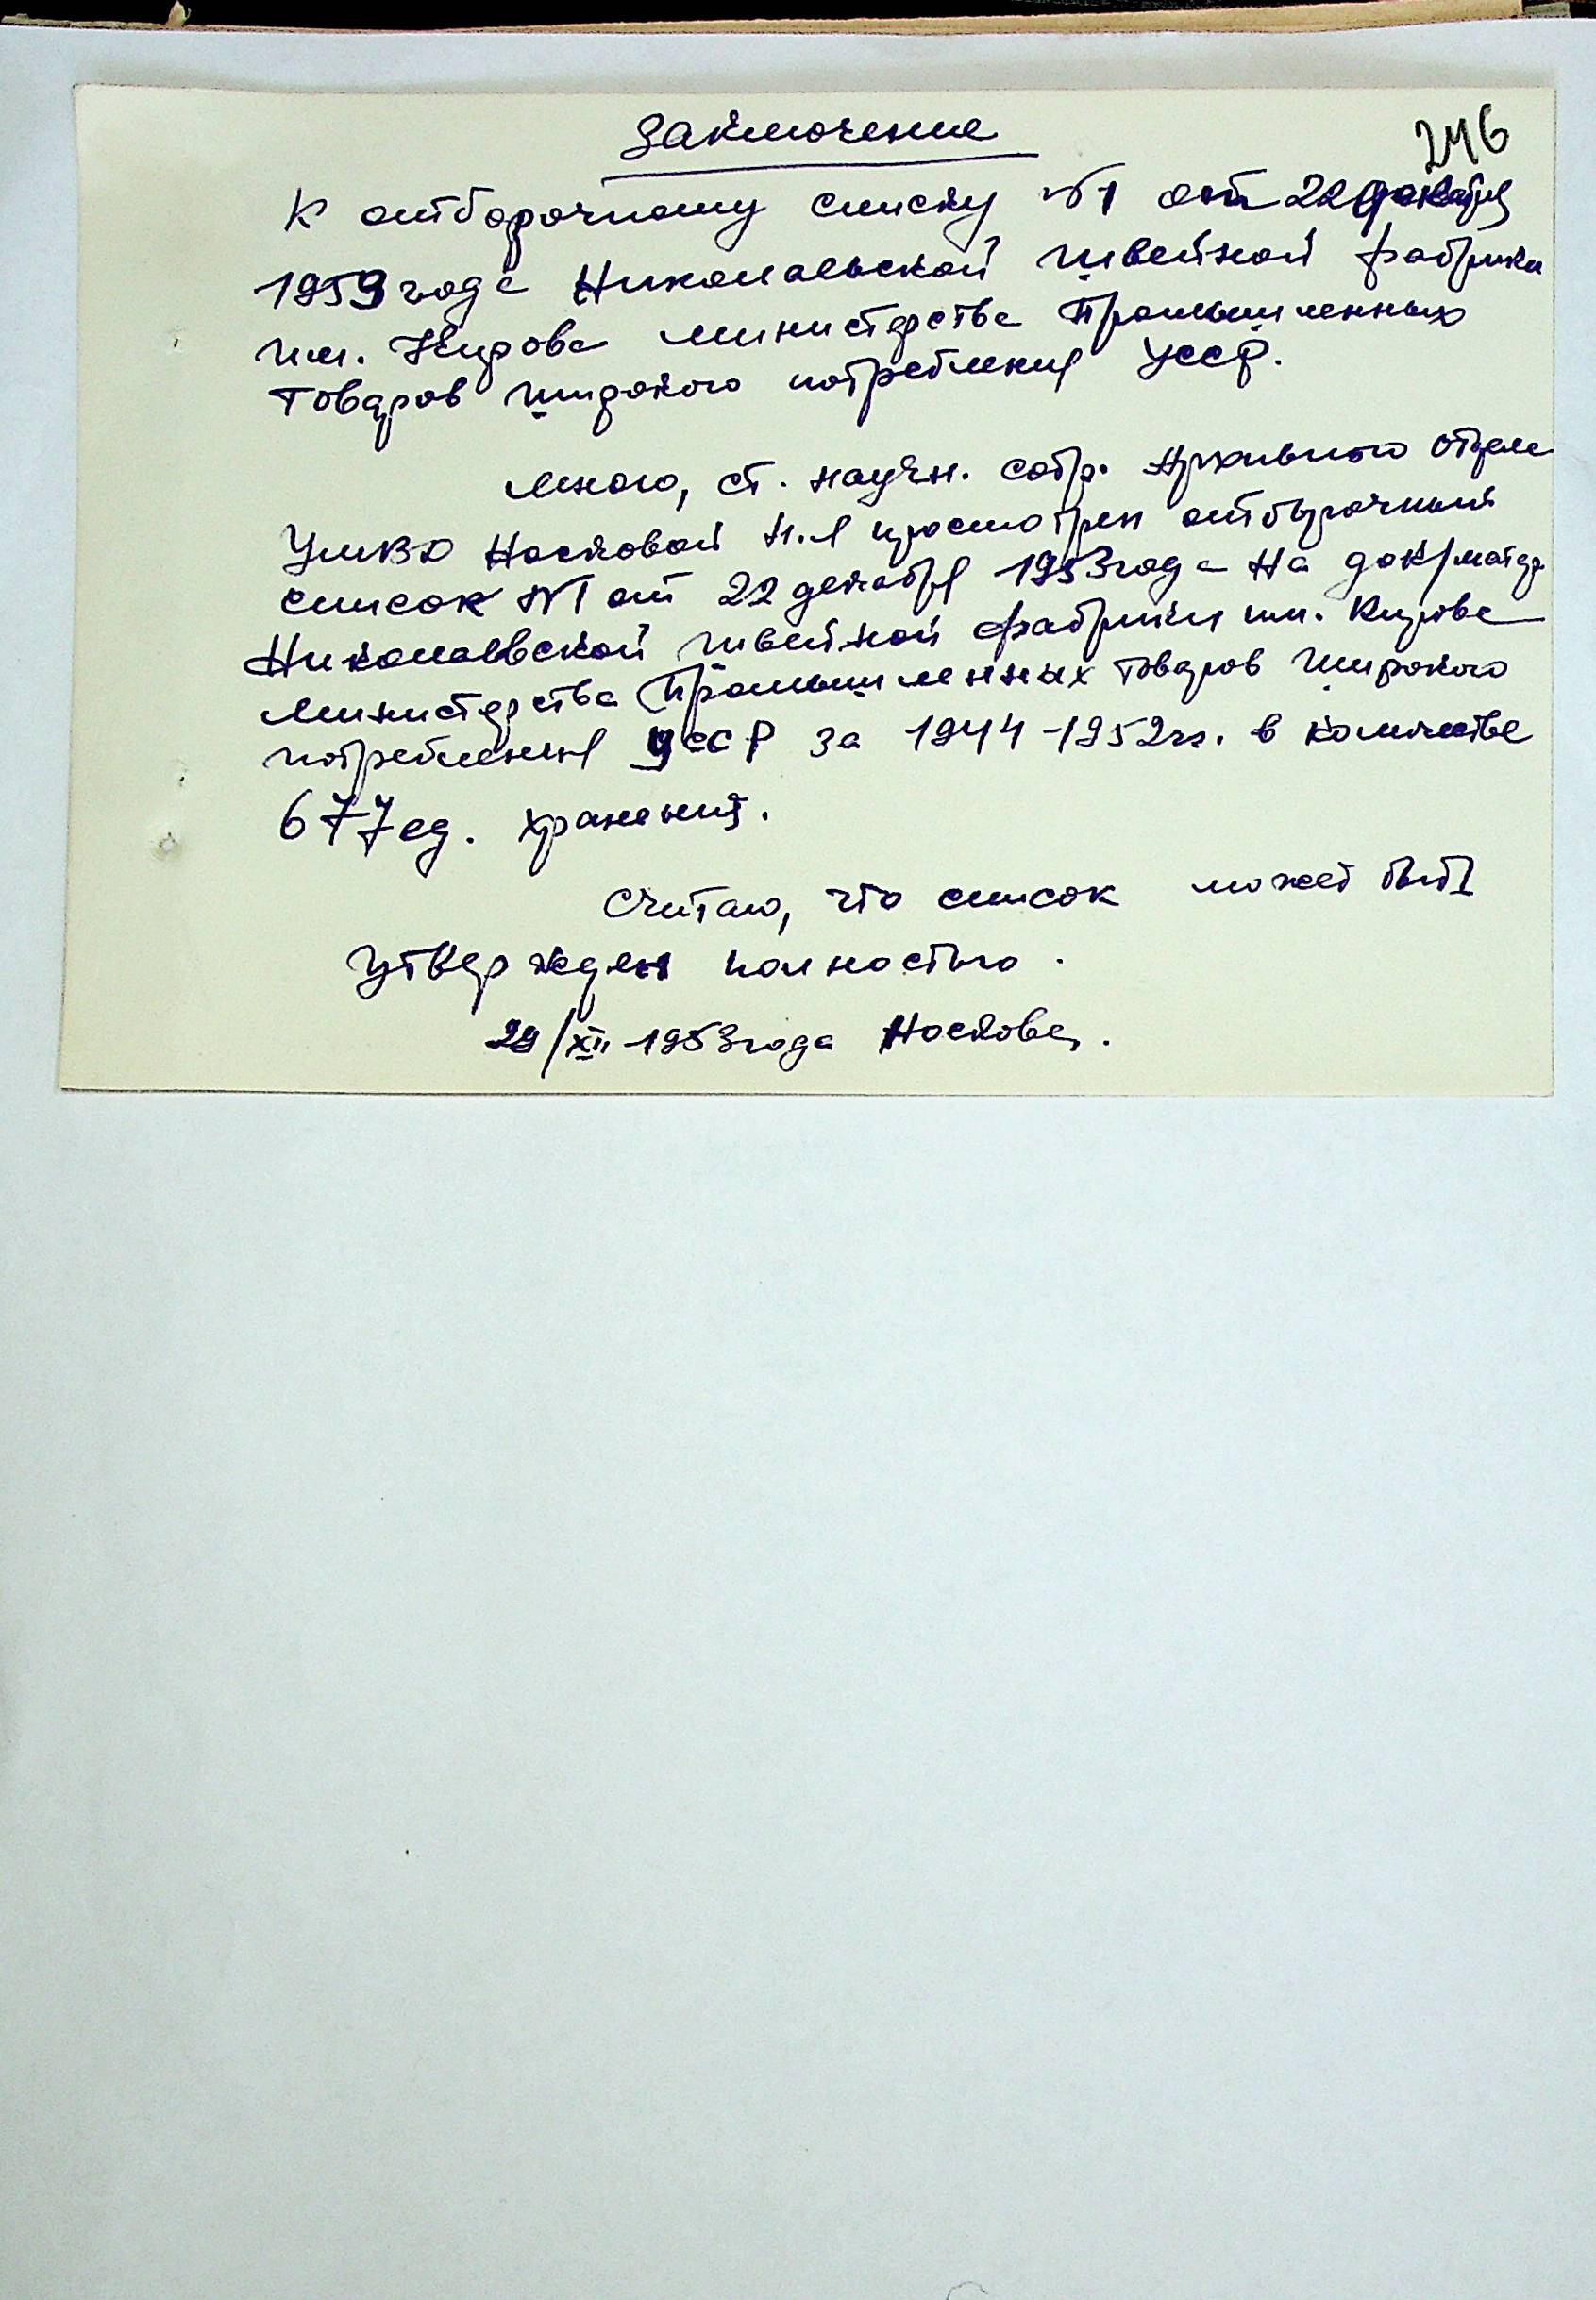 Заключение
246
К отборочному списку №1 от 22 декабря
1953 года Николаевской швейной фабрики
им. Кирова министерства Промышленных
Товаров широкого потребления УССР.
Мною, ст. научн. сотр. Архивного отдела
УМВД Носковой Н.Л просмотрен отборочный
список №1 от 22 декабря 1953 года на док/матер
Николаевской швейной фабрики им. Кирова
Министерства Промышленных товаров широкого
потребления УССР за 1944-1952гг. в количестве
677 ед. хранения.
Считаю, что список может быть
утвержден полностью.
29/XII-1953года Носкова.